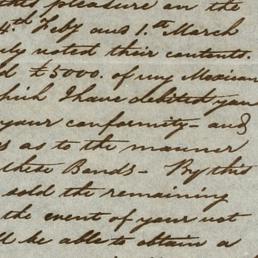 this pleasure on the
4th Feby and 1st March
noted their contents.
£5000. of my Mexican
which I have debited you
your conformity - and
as to the manner
these Bonds - By this
sold the remaining
the event of your not
be able to obtain a